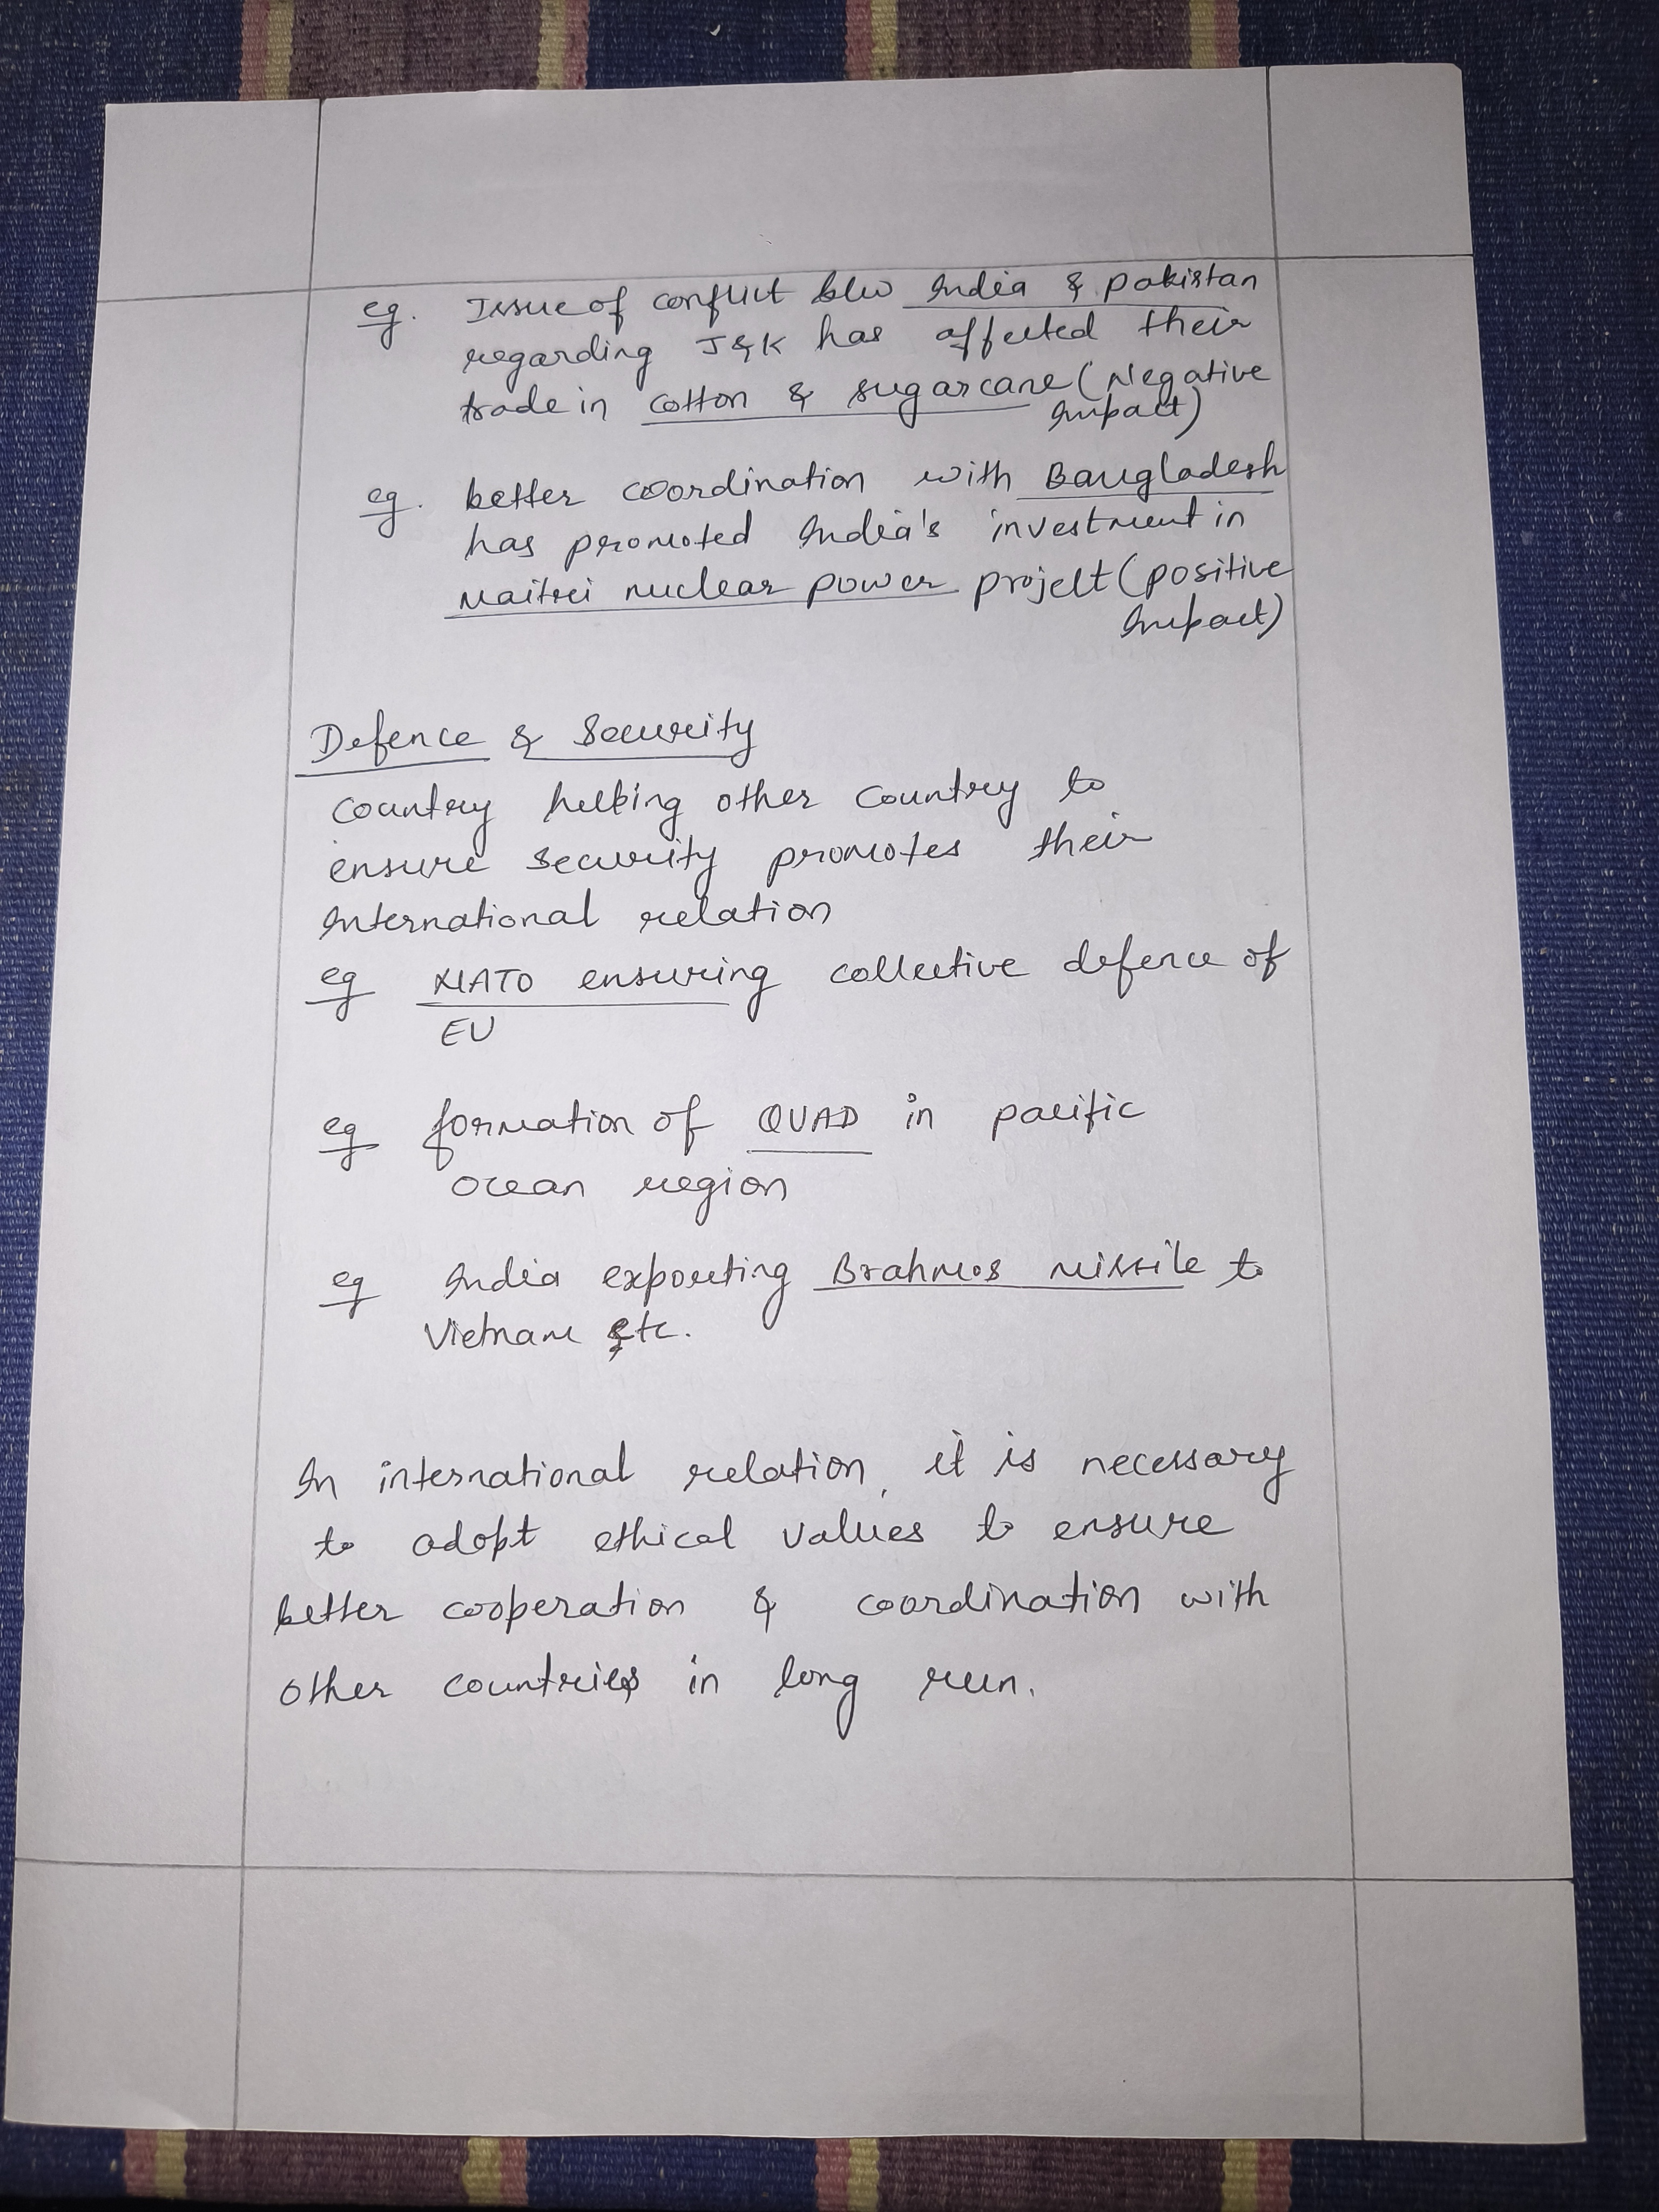 eg. Issue of conflict b/w India & pakistan
regarding J&K has affected their
trade in cotton & sugarcane (Negative
Impact)
eg. better coordination with Bangladesh
has promoted India's investment in
Maitri nuclear power project (positive
Impact)
Defence & Security
Country helping other country to
ensure security promotes their
International relation
eg NATO ensuring collective defence of
EU
eg formation of QUAD in pacific
ocean region
eg India exporting Brahmos missile to
Vietnam etc.
In international relation, it is necessary
to adopt ethical values to ensure
better cooperation & coordination with
other countries in long run.